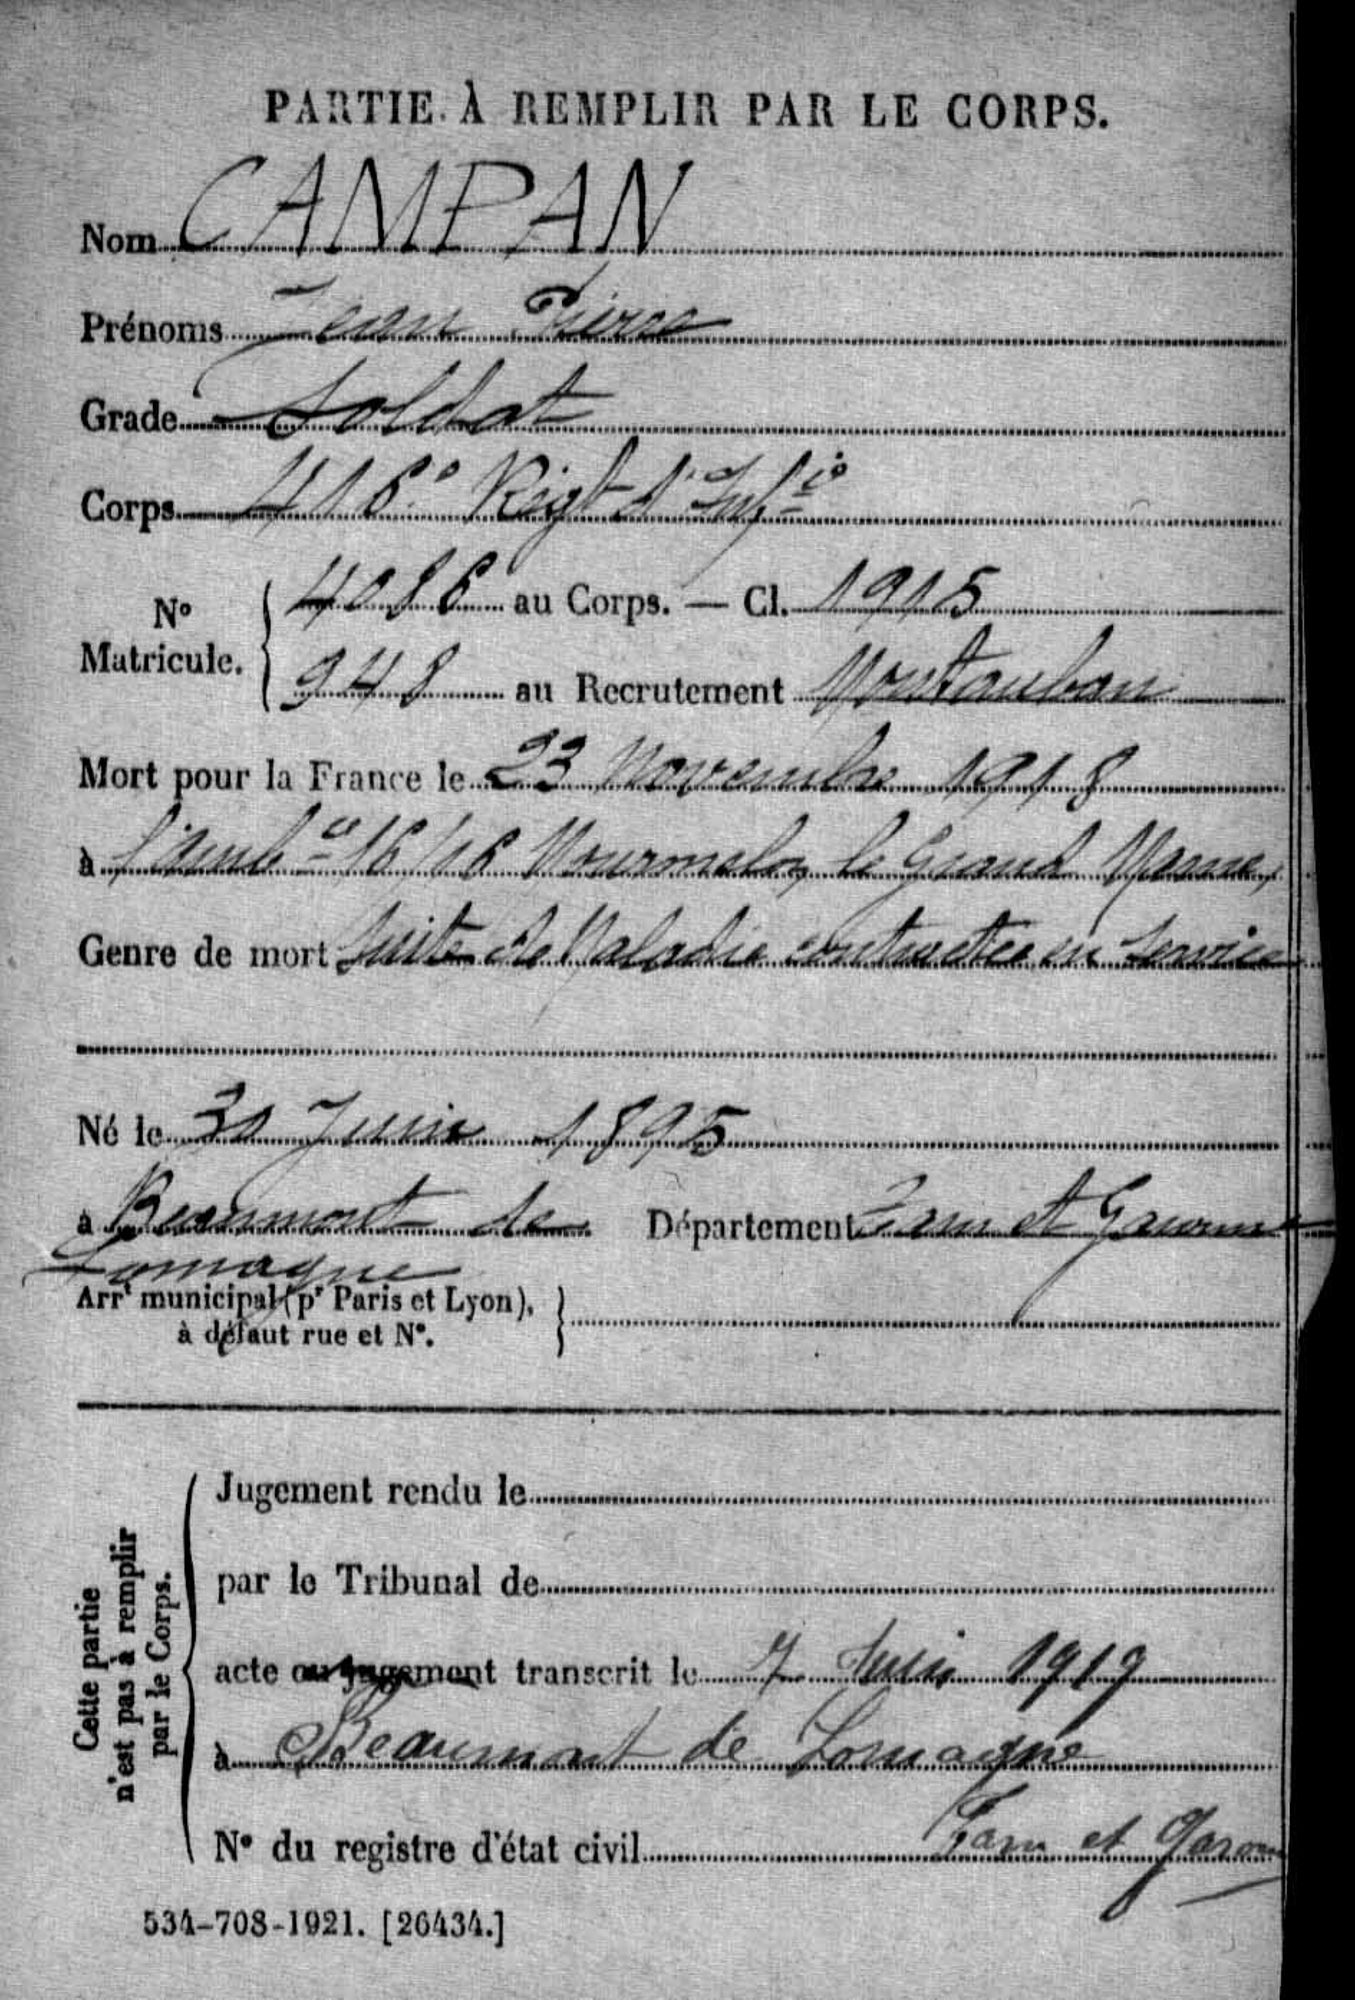 PARTIE À REMPLIR PAR LE CORPS.
Nom CAMPAN
Prénoms Jean Pierre
Grade Soldat
Corps 416e Régt d'Infie
No Matricule. 4086 au Corps. — Cl. 1915
948 au Recrutement Montauban
Mort pour la France le 23 Novembre 1918
à l'Ambce 16/16 Mourmelon le Grand Marne,
Genre de mort Suite de Maladie contractée en service
Né le 31 Juin 1895
à Beaumont de Département Tarn et Garonne
Lomagne
Arrt municipal (pr Paris et Lyon),
à défaut rue et No.
Cette partie
n'est pas à remplir
par le Corps.
Jugement rendu le
par le Tribunal de
acte ou jugement transcrit le 7 Juin 1919
à Beaumont de Lomagne
No du registre d'état civil Tarn et Garonne
534-708-1921. [26434.]